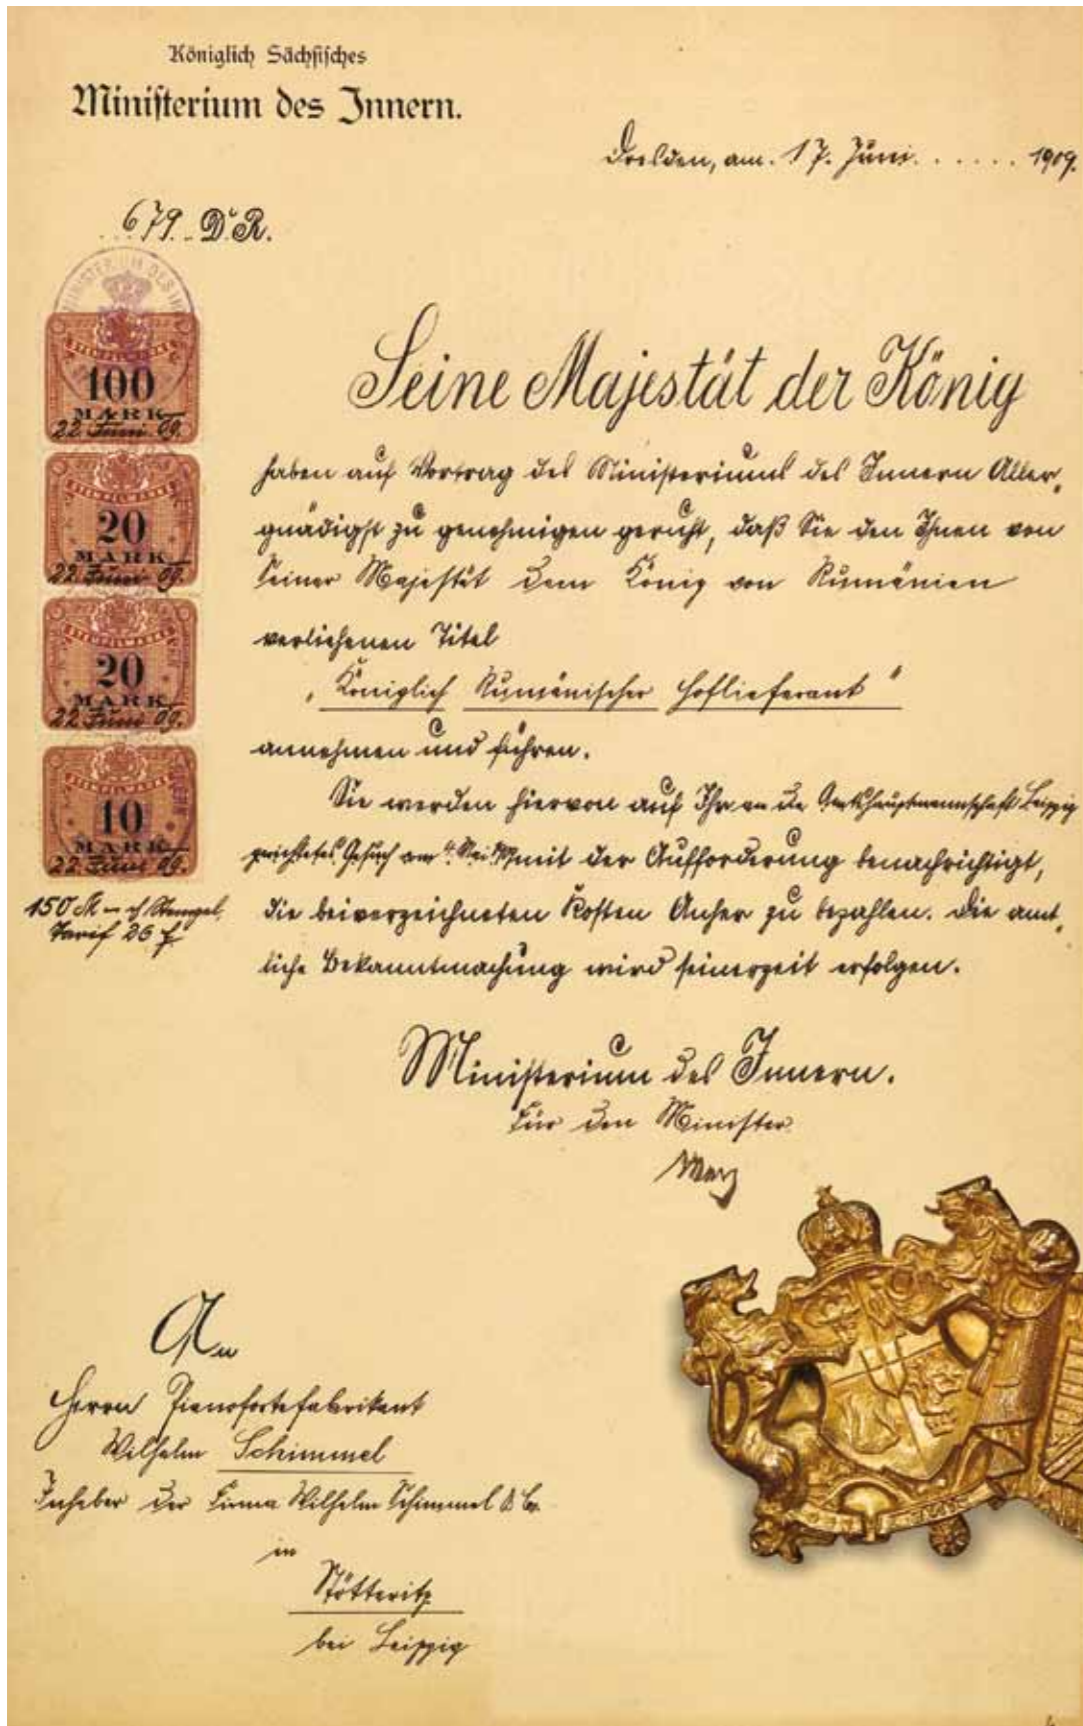 Königlich Sächsisches
Ministerium des Innern.
Dresden, am 17. Juni 1909.
679. D. R.
MINISTERIUM DES
STEMPELMARKE
100
MARK
22. Juni 09.
STEMPELMARKE
20
MARK
22. Juni 09.
STEMPELMARKE
20
MARK
22. Juni 09.
STEMPELMARKE
10
MARK
22. Juni 09.
150 M Stempel,
Tarif 26 f
Seine Majestät der König
haben auf Vortrag des Ministeriums des Innern Aller-
gnädigst zu genehmigen geruht, daß Sie den Ihnen von
Seiner Majestät dem König von Rumänien
verliehenen Titel
„Königlich Rumänischer Hoflieferant“
annehmen und führen.
Sie werden hiervon auf Ihr an die Amtshauptmannschaft Leipzig
gerichtetes Gesuch vom Mai mit der Aufforderung benachrichtigt,
die beiverzeichneten Kosten Anher zu bezahlen. Die amt-
liche Bekanntmachung wird seinerzeit erfolgen.
Ministerium des Innern.
Für den Minister
Merz
An
Herrn Pianofortefabrikant
Wilhelm Schimmel
Inhaber der Firma Wilhelm Schimmel & Co.
in
Stötteritz
bei Leipzig